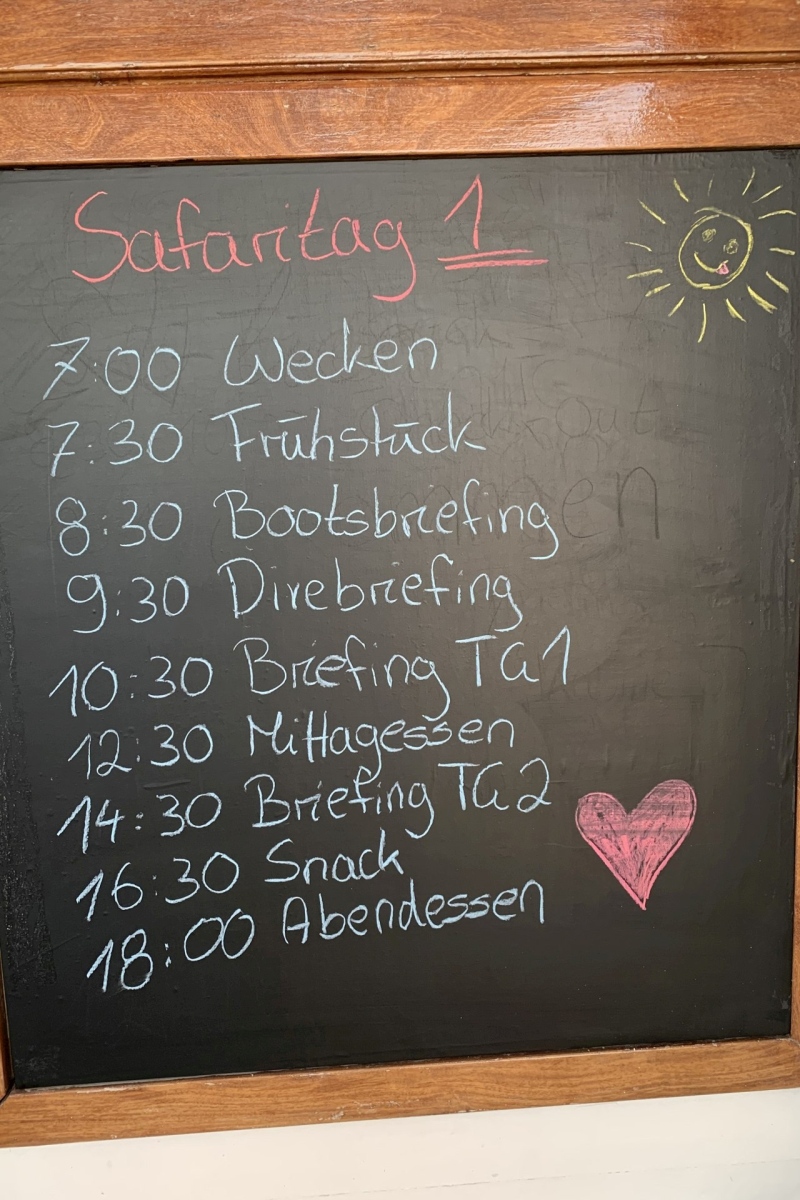 Safaritag 1
7:00 Wecken
7:30 Frühstück
8:30 Bootsbriefing
9:30 Divebriefing
10:30 Briefing TG1
12:30 Mittagessen
14:30 Briefing TG2
16:30 Snack
18:00 Abendessen